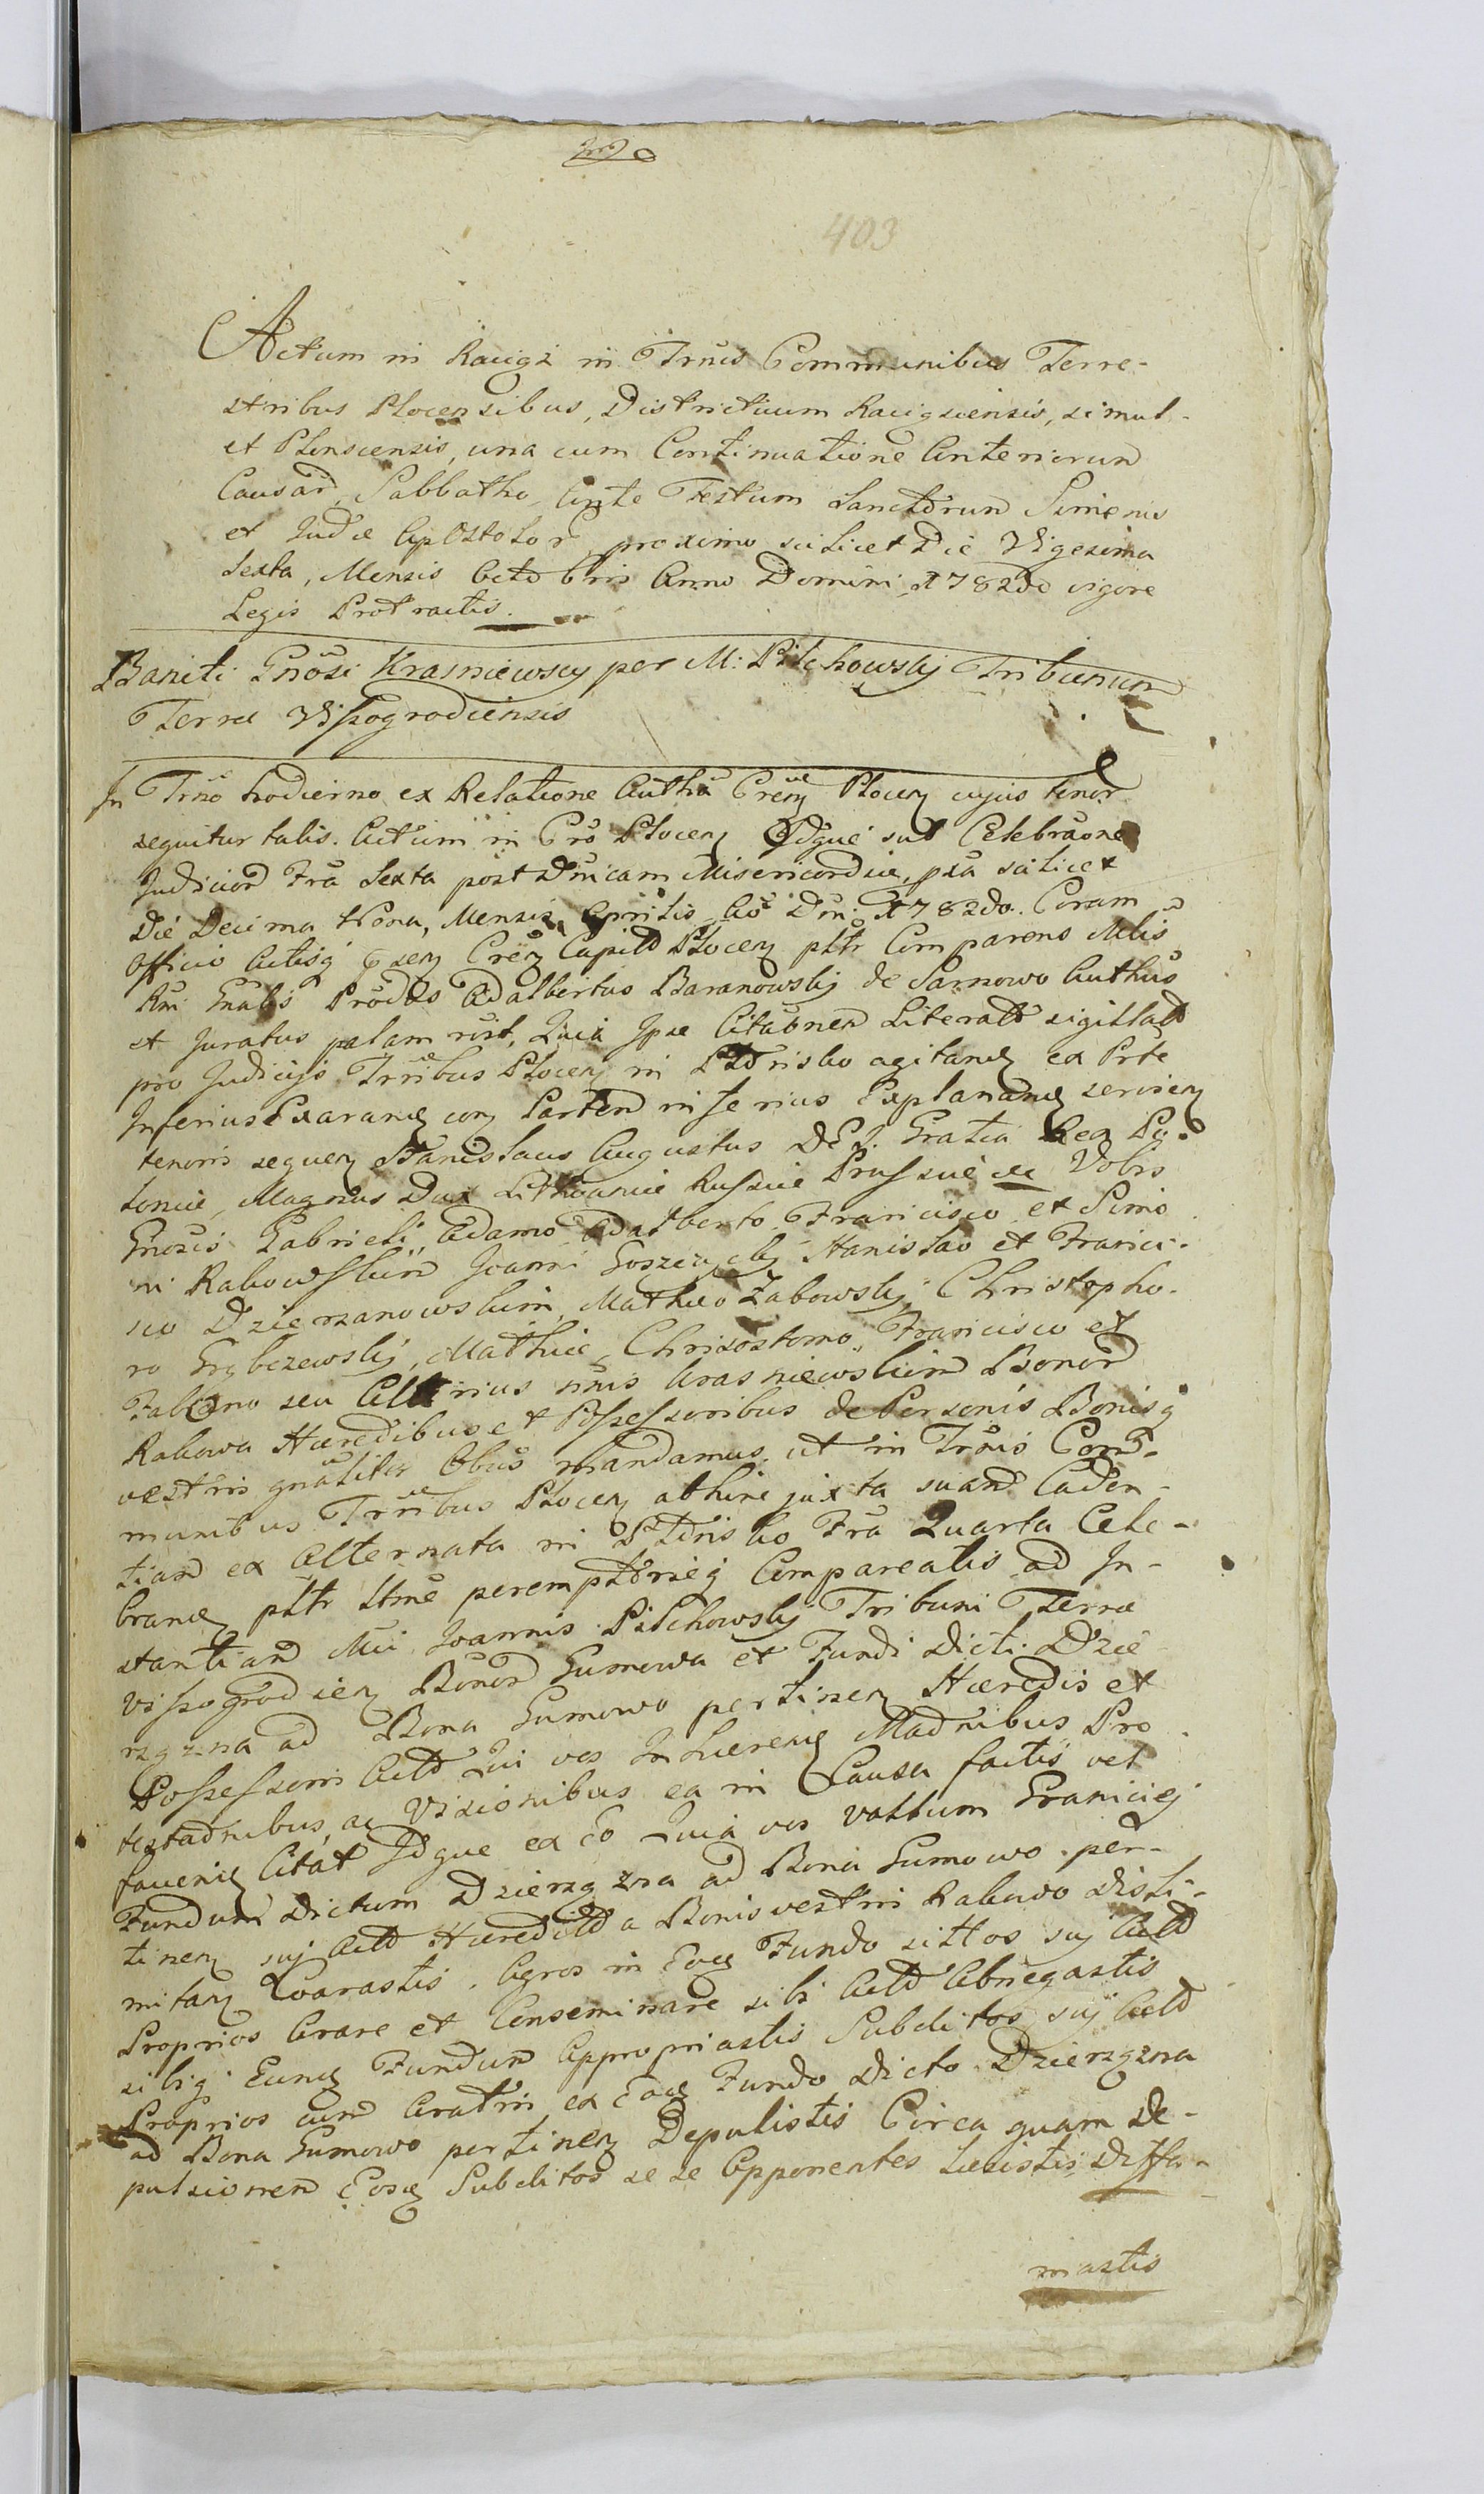 403
Actum in Raciąż in Trnis Communibus Terre-
stribus Plocensibus, Districtuum Raciązcensis, simul
et Plonscensis, una cum Continuatione Anteriorum
Causar, Sabbatho Ante Festum Sanctorum Simonis
et Judæ Apostolor proximo scilicet Die Vigesima
Sexta, Mensis Octobris Anno Domini 1782do vigore
Legis Protractis.
Baniti Gnosi Krasniewscy per M: Pilchowskij Tribunum
Terræ Wyszogrodiensis
In Trno hodierno ex Relatione Auth Cren Plocen cujus tenor
sequitur talis. Actum in Cro Plocen Idque sub Celebraone
Judicior Fra Sexta post Dnicam Misericordiæ, pxa scilicet
Die Decima Nona, Mensis Aprilis Ao Dni 1782do. Coram
Officio Actisq psen Cren Capitl Plocen psltr Comparens Mlis
Rni Gnalis Produs Adalbertus Baranowskij de Sarnowo Authus
et Juratus palam rcst, Quia Ipse Citaonem Literall sigillatt
pro Judicijs Trribus Plocen in Płonsko agitand ex Prte
Inferius Exarand con Partem inferius Explanand servien
tenoris sequen Stanislaus Augustus DEI Gratia Rex Po-
loniæ, Magnus Dux Lithvaniæ Russiæ Prussiæ &c Vobis
Gnosis Gabrieli, Adamo Adalberto Francisco et Simo
ni Rakowskim Joanni Goszczyckij Stanislao et Franci-
sco Dzierzanowskim, Matheo Zabowskij, Christopho-
ro Grąbczewskij, Mathiæ Chrisostomo Francisco et
Fabiano seu Alterius nnis Krasniewskim Bonor
Rakowa Hæredibus et Possessoribus de Personis Bonisq
vestris gnaliter Obus mandamus, ut in Trnis Com-
munibus Trribus Plocen abhinc juxta suam Caden-
tiam ex Alternata in Płonsko Fra Quarta Cele-
brand psltr ltme peremptorieq Compareatis ad In-
stantiam Mci Joannis Pilchowskij Tribuni Terræ
Wyszogrodien Bonor Gumowa et Fundi dicti Dzie
rzązna ad Bona Gumowo pertinen Hæredis et
Possessoris Actor Qui vos Inhæren Madnibus Pro
testaonibus, ac Visionibus ea in Causa factis vel
faciend Citat Idque ex Eo Quia vos vallum Graniciej
Fundum dictum Dzierzązna ad Bona Gumowo per-
tinen suj Actor Hæredita a Bonis vestris Rakowo disli-
mitan Exarastis. Agros in Eod Fundo sittos suj Actor
Proprios Arare et Conseminare sibi Actor Abnegastis
sibiq Eund Fundum Appropriastis Subditos suj Actor
Proprios cum Aratris ex Eod Fundo dicto Dzierzązna
ad Bona Gumowo pertinen Depulistis Circa quam De-
pulsionem Eosd Subditos se se Opponentes Læsistis Diffa-
mastis